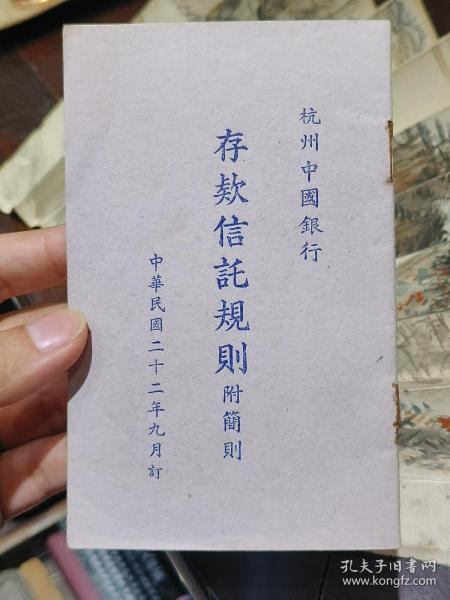 杭州中國銀行
存欵信託規則附簡則
中華民國二十二年九月訂
孔夫子旧书网
www.kongfz.com